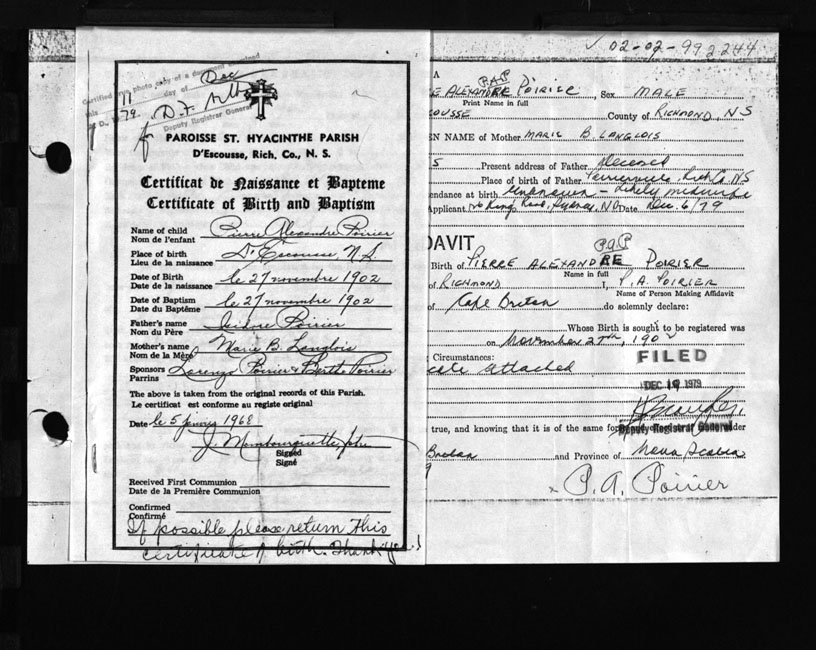 Certified true photo copy of a document examined
this 11 day of Dec
A.D. 1979.
Deputy Registrar General
PAROISSE ST. HYACINTHE PARISH
D'Escousse, Rich. Co., N. S.
Certificat de Naissance et Bapteme
Certificate of Birth and Baptism
Name of child Pierre Alexandre Poirier
Nom de l'enfant
Place of birth D'Escousse N.S.
Lieu de la naissance
Date of Birth le 27 novembre 1902
Date de la naissance
Date of Baptism le 27 novembre 1902
Date du Baptême
Father's name Isidore Poirier
Nom du Père
Mother's name Marie B. Langlois
Nom de la Mère
Sponsors Lorenzo Poirier & Berthe Poirier
Parrins
The above is taken from the original records of this Parish.
Le certificat est conforme au registe original
Date le 5 1968
J. Mombourquette, ptre
Signed
Signé
Received First Communion
Date de la Première Communion
Confirmed
Confirmé
If possible please return this
certificate of birth. Thank you!
02-02-99 2244
A
P.A.P
E ALEXANDRE POIRIER, Sex MALE
Print Name in full
COUSSE County of RICHMOND, NS
EN NAME of Mother MARIE B. LANGLOIS
S Present address of Father Deceased
Place of birth of Father Rich Co NS
endance at birth Unknown - likely midwife
Applicant Kings Road, Sydney, NS Date Dec. 6/79
DAVIT
P.A.P
Birth of PIERRE ALEXANDRE POIRIER
Name in full
of RICHMOND I, P.A. POIRIER
Name of Person Making Affidavit
of Cape Breton do solemnly declare:
Whose Birth is sought to be registered was
on November 27th, 1902
Circumstances: FILED
cate attached
DEC 19 1979
true, and knowing that it is of the same for Deputy Registrar General der
Breton and Province of Nova Scotia
9
x P. A. Poirier